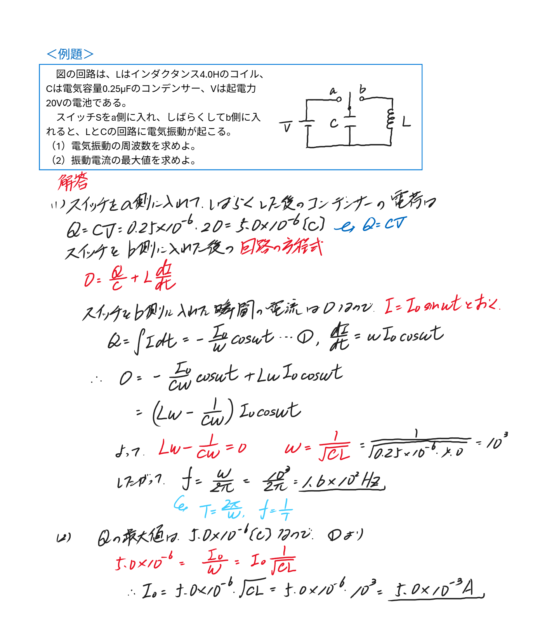 ＜例題＞
図の回路は、Lはインダクタンス4.0Hのコイル、
Cは電気容量0.25μFのコンデンサー、Vは起電力
20Vの電池である。
スイッチSをa側に入れ、しばらくしてb側に入
れると、LとCの回路に電気振動が起こる。
（1）電気振動の周波数を求めよ。
（2）振動電流の最大値を求めよ。
a b
V C L
解答
(1) スイッチをa側に入れて、しばらくした後のコンデンサーの電荷は
Q=CV=0.25×10⁻⁶・20=5.0×10⁻⁶(C) Q=CV
スイッチをb側に入れた後の回路の方程式
0=Q/C+L dI/dt
スイッチをb側に入れた瞬間の電流は0なので、I=I₀sinωtとおく
Q=∫Idt=-I₀/ω cosωt…①, dI/dt=ωI₀cosωt
∴ 0=-I₀/Cω cosωt+LωI₀cosωt
=(Lω-1/Cω)I₀cosωt
よって、Lω-1/Cω=0 ω=1/√CL=1/√0.25×10⁻⁶×4.0=10³
したがって、f=ω/2π=10³/2π=1.6×10²Hz
T=2π/ω, f=1/T
(2) Qの最大値は、5.0×10⁻⁶(C)なので、①より
5.0×10⁻⁶=I₀/ω=I₀ 1/√CL
∴ I₀=5.0×10⁻⁶・√CL=5.0×10⁻⁶・10³=5.0×10⁻³A